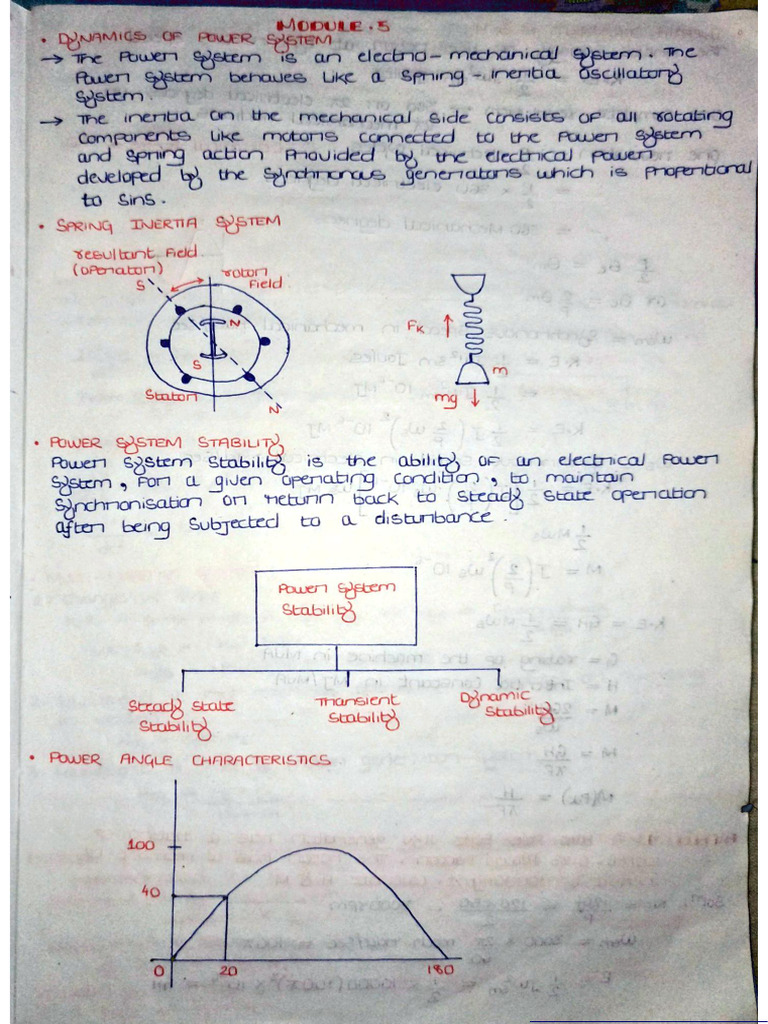 MODULE.5
• DYNAMICS OF POWER SYSTEM
→ The Power System is an electro-mechanical System. The
Power System behaves like a Spring-inertia oscillatory
System.
→ The inertia on the mechanical side consists of all rotating
components like motors connected to the Power System
and Spring action Provided by the electrical Power
developed by the Synchronous generators which is Proportional
to Sins.
• SPRING INERTIA SYSTEM
resultant Field
(operator)
S
rotor
Field
N
S
Stator
N
FK
m
mg
• POWER SYSTEM STABILITY
Power System Stability is the ability of an electrical Power
System, For a given operating condition, to maintain
Synchronisation or return back to Steady State operation
after being Subjected to a disturbance.
Power System
Stability
Steady State
Stability
Transient
Stability
Dynamic
Stability
• POWER ANGLE CHARACTERISTICS
100
40
0
20
180